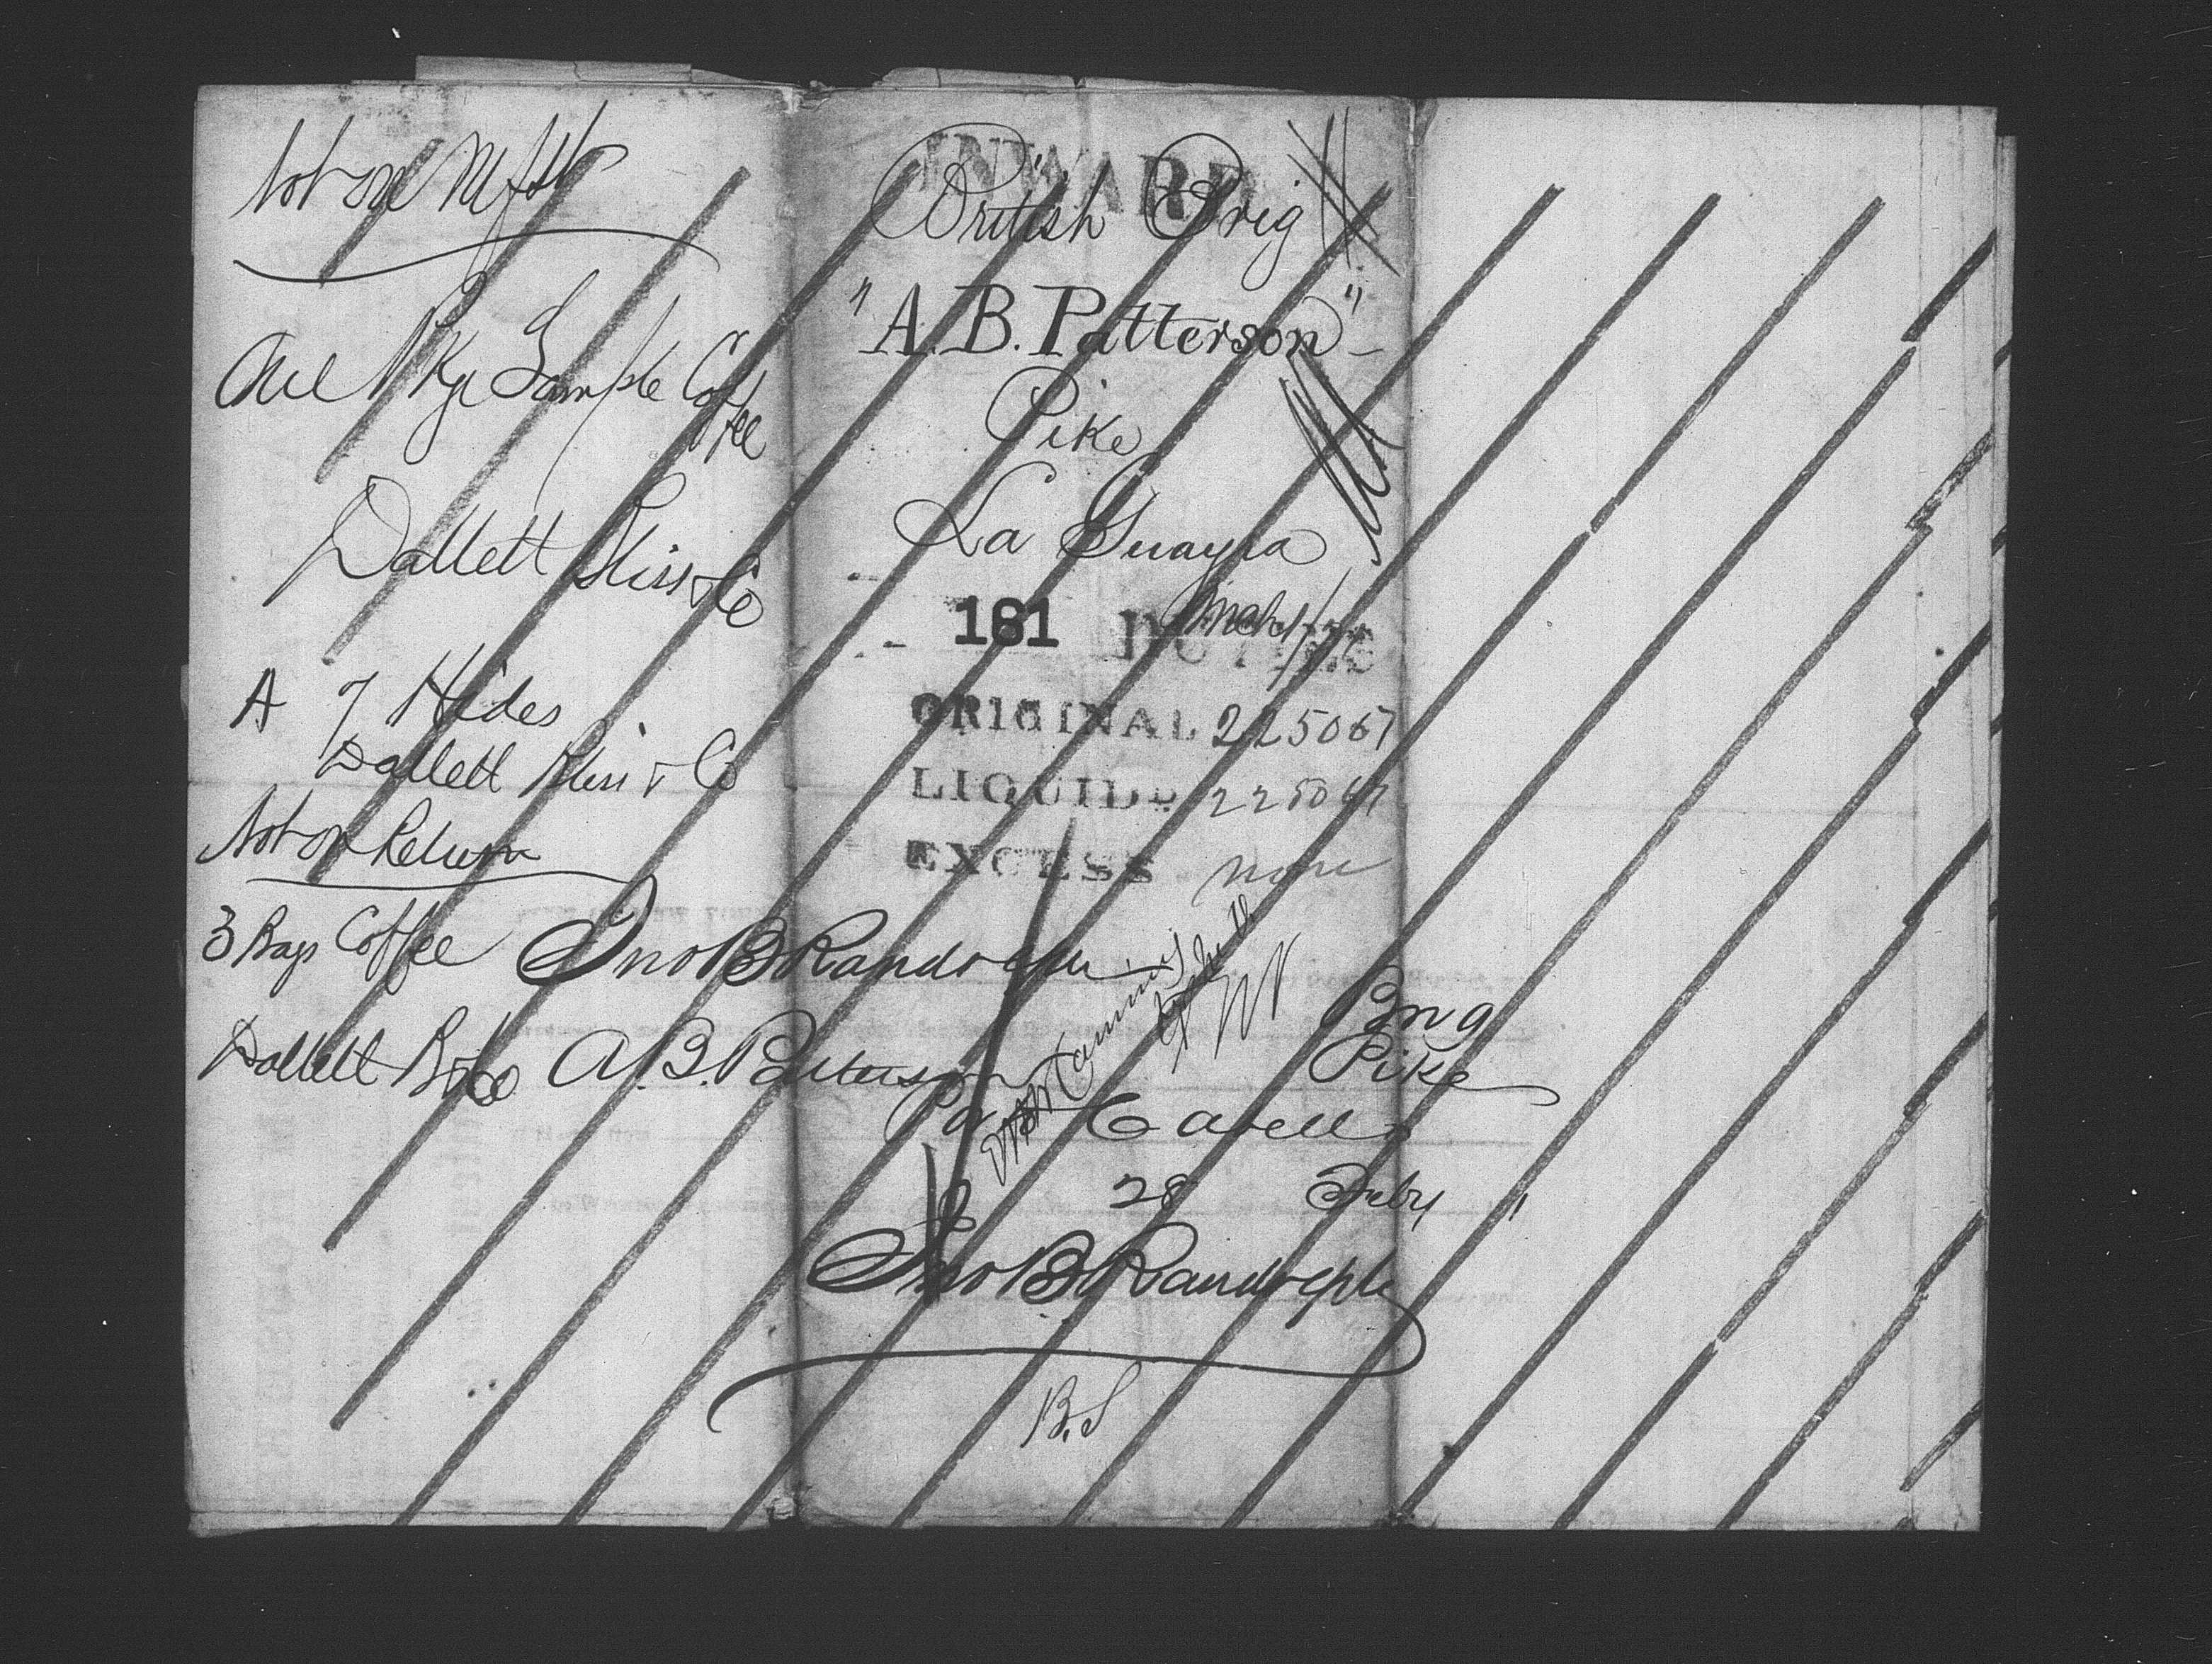 Not on Mfst
One Pkge Sample Coffee
Dallett Bliss & Co
A 7 Hides
Dallett Bliss & Co
Not on Return
3 Bags Coffee
Dallett B & Co
INWARD
British Brig
"A. B. Patterson"
Pike
La Guayra
181
DUTIES
ORIGINAL 225067
LIQUID 225067
EXCESS none
Jno B Randolph
A. B. Patterson Brig
Pike
Cabello
28 Feby "
Jno B Randolph
B.S